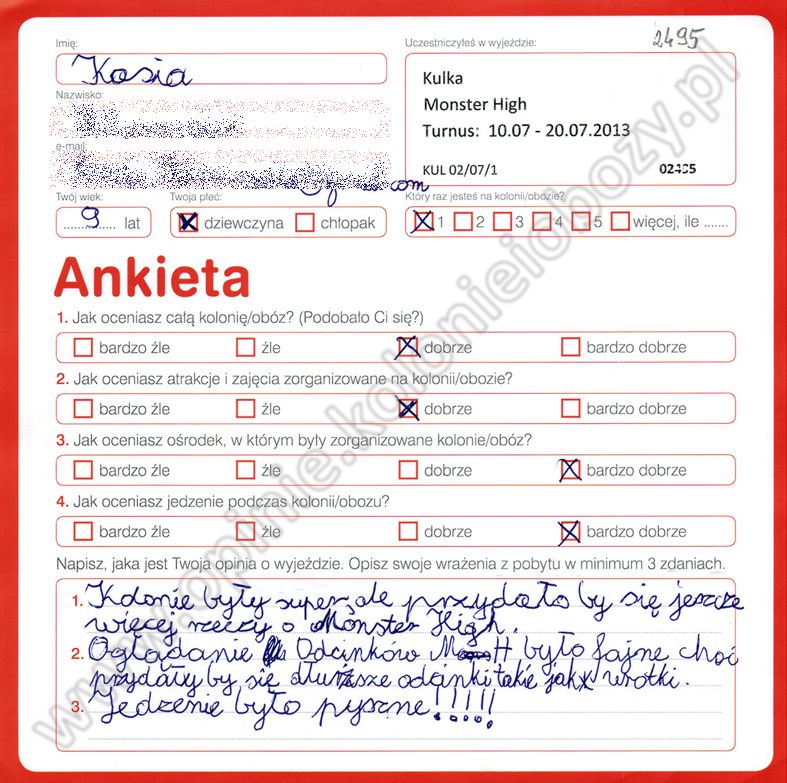 2495
Imię:
Uczestniczyłeś w wyjeździe:
Kasia
Kulka
Nazwisko:
Monster High
Turnus: 10.07 - 20.07.2013
e-mail:
KUL 02/07/1 02495
.com
Twój wiek: Twoja płeć: Który raz jesteś na kolonii/obozie?
9 lat dziewczyna chłopak 1 2 3 4 5 więcej, ile .......
Ankieta
1. Jak oceniasz całą kolonię/obóz? (Podobało Ci się?)
bardzo źle źle dobrze bardzo dobrze
2. Jak oceniasz atrakcje i zajęcia zorganizowane na kolonii/obozie?
bardzo źle źle dobrze bardzo dobrze
3. Jak oceniasz ośrodek, w którym były zorganizowane kolonie/obóz?
bardzo źle źle dobrze bardzo dobrze
4. Jak oceniasz jedzenie podczas kolonii/obozu?
bardzo źle źle dobrze bardzo dobrze
Napisz, jaka jest Twoja opinia o wyjeździe. Opisz swoje wrażenia z pobytu w minimum 3 zdaniach.
1. Kolonie były super, ale przydało by się jeszcze
więcej rzeczy o Monster High.
2. Oglądanie Odcinków M H było fajne choć
przydały by się dłuższe odcinki takie jak wrotki.
3. Jedzenie było pyszne!!!!!
www.opinie.kolonieiobozy.pl